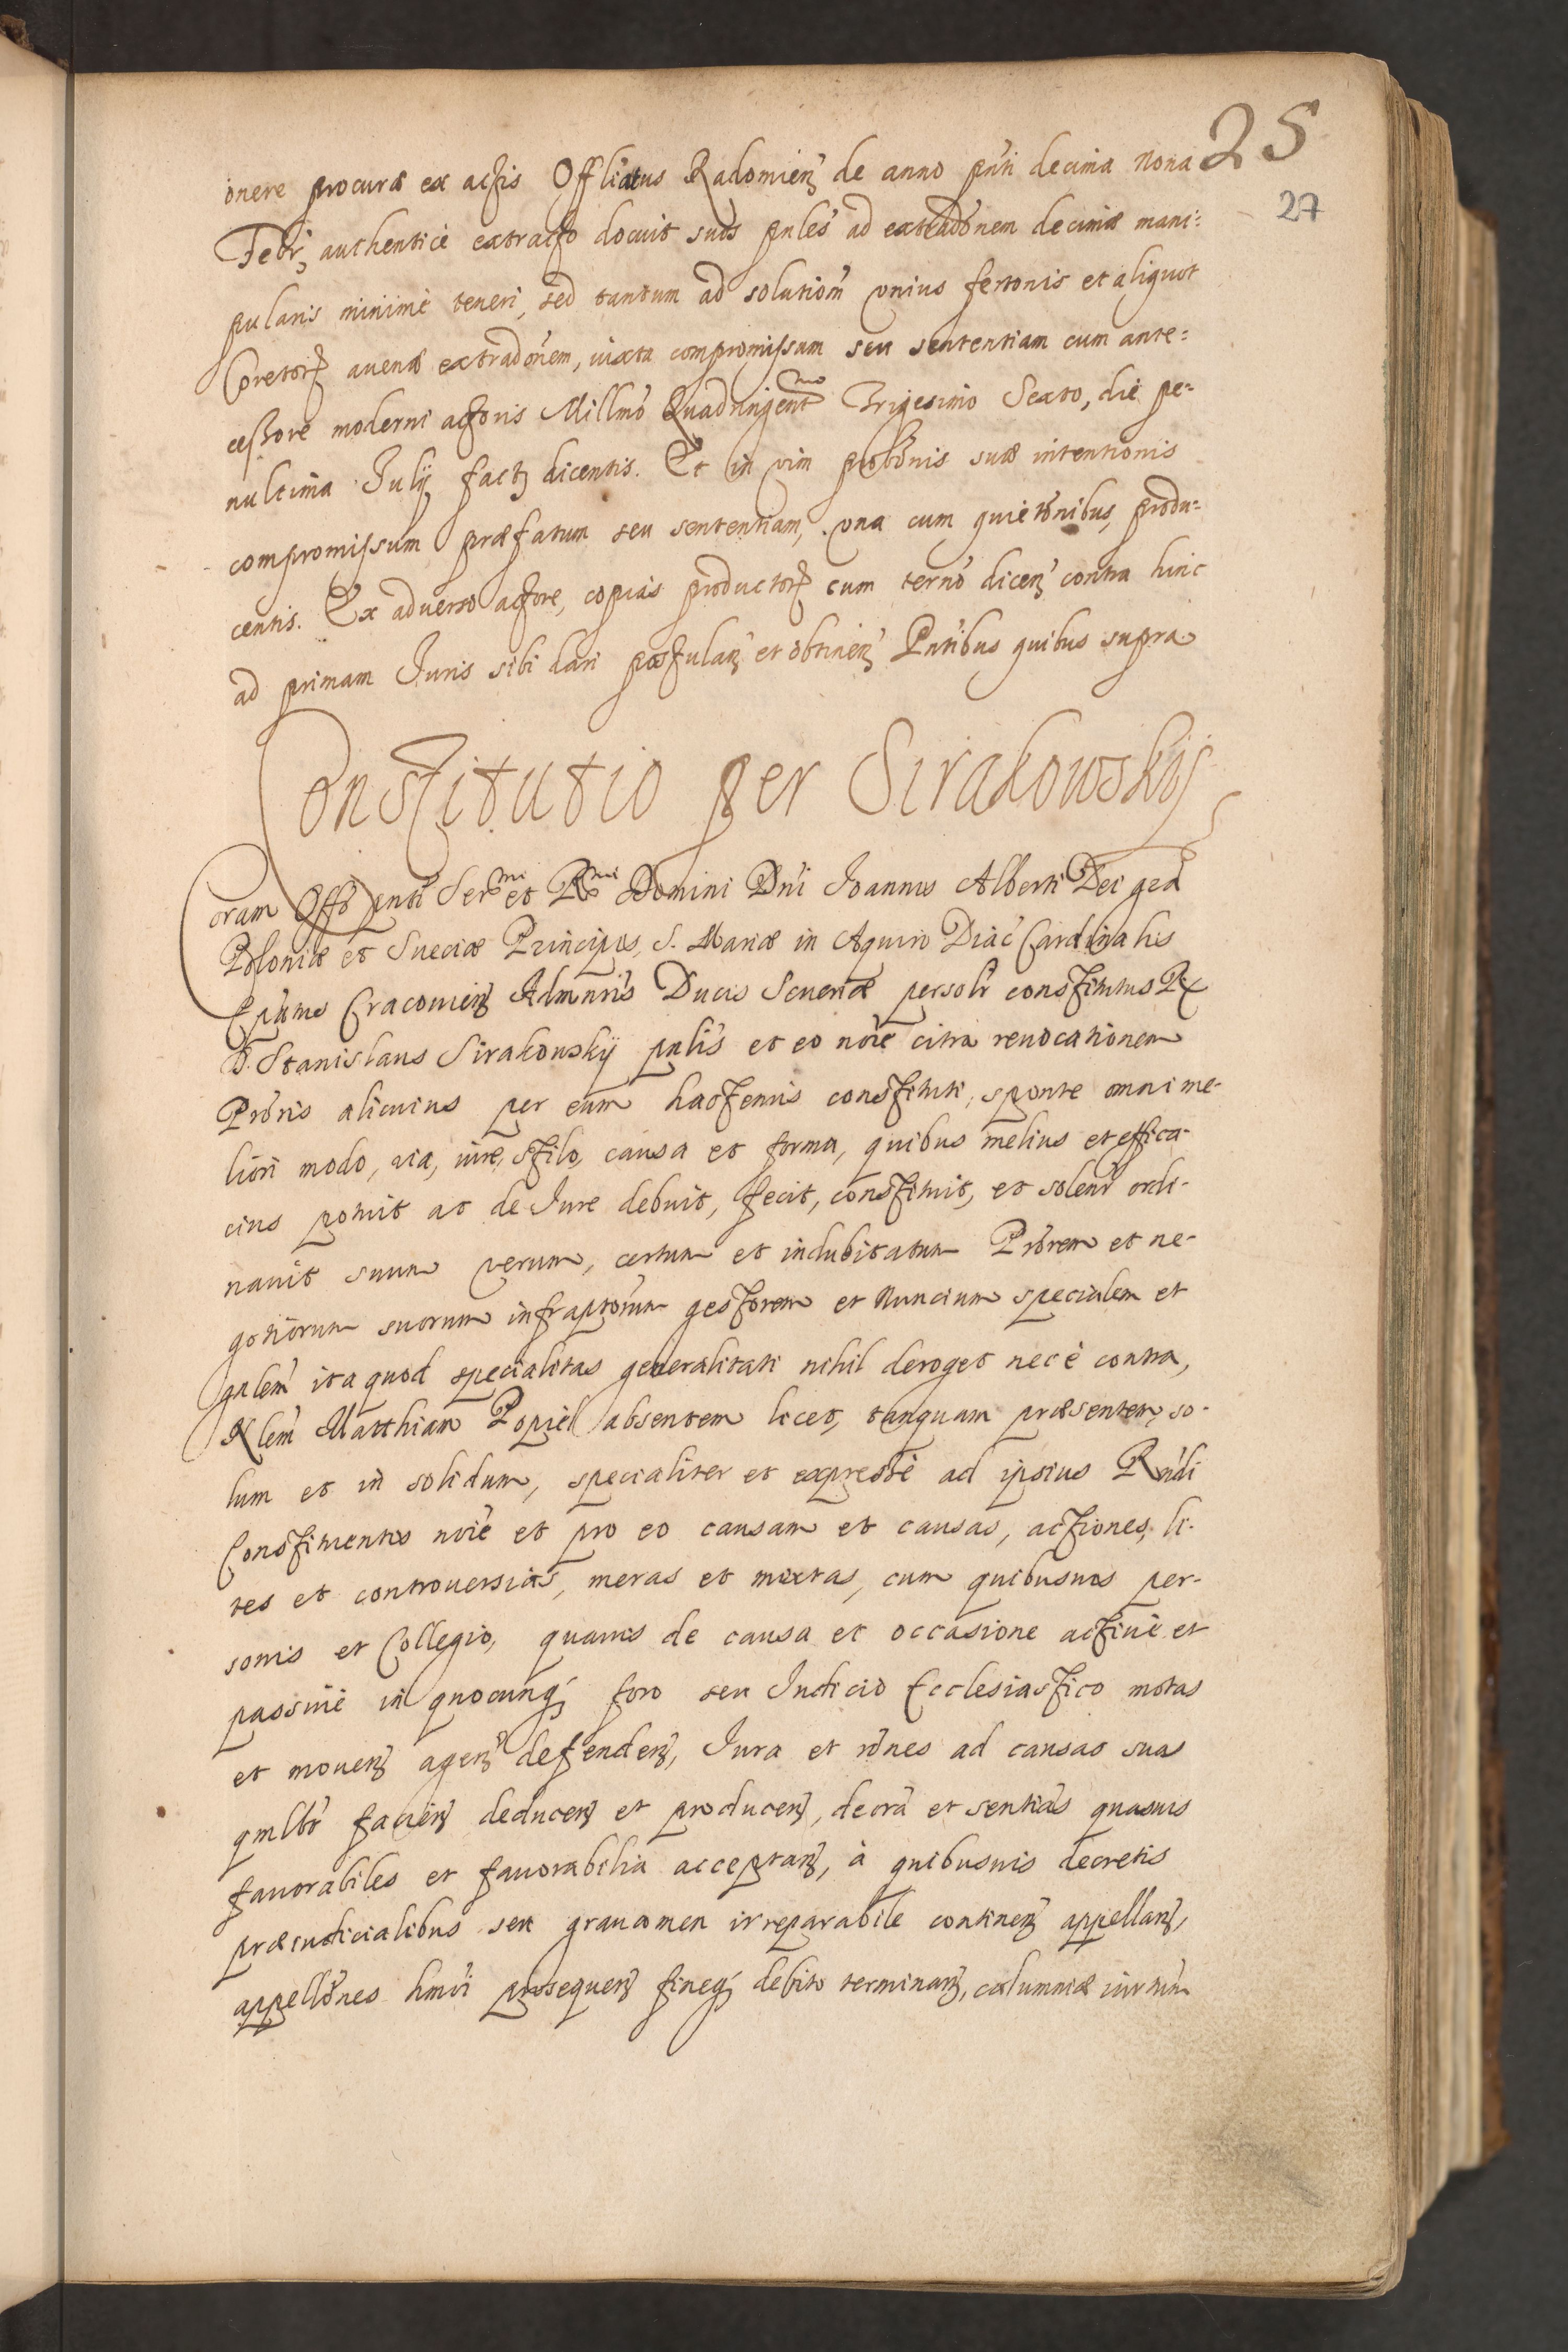 25
27
onere procuræ ex actis Offliatus Radomieñ de anno pñti decima Nona
Febr, authenticè extracto docuit suos pñles ad extradõnem decimæ mani:
pularis minimè teneri, sed tantum ad solutioñ vnius fertonis et aliquot
Coretorũ auenæ extradõnem, iuxta compromissum seu sententiam cum ante:
ceßore moderni actoris Millmõ Quadringentᵐᵒ Trigesimo Sexto, die pe:
nultima Iulij fact dicentis. Et in vim probõnis suæ intentionis
compromissum præfatum seu sententiam, vna cum quietõnibus, produ:
centis. Ex aduerso actore, copias productorũ cum ternõ diceñ contra hinc
ad primam Iuris sibi dari postulañ et obtineñ Pñtibus quibus supra
Constitutio per Sirakowskij
Coram Offõ pñti Serᵐⁱ et Rᵐⁱ Domini Dñi Ioannis Alberti Dei gra
Poloniæ et Sueciæ Principis, S. Mariæ in Aquiro Diac Cardinalis
Epatus Cracouieñ Admñris Ducis Seueriæ persolr constitutus R
D. Stanislaus Sirakowskij pnlis et eo noie citra reuocationem
Prõris alicuius per eum hactenus constituti, sponte omni me-
liori modo, via, iure, stilo, causa et forma, quibus melius et effica-
cius potuit ac de Iure debuit, fecit, constituit, et solenr ordi-
nauit suum verum, certum et indubitatum Prõrem et ne-
gotiorum suorum infraptorum gestorem et Nuncium specialem et
gnlem ita quod specialitas generalitati nihil deroget nec è contra,
Rlem Matthiam Popiel absentem licet, tanquam præsentem, so-
lum et in solidum, specialiter et expressè ad ipsius Rñdi
Constituentis noie et pro eo causam et causas, actiones, li-
tes et controuersias, meras et mixtas, cum quibusuis per-
sonis et Collegio, quauis de causa et occasione actiuè et
passiuè in quocunq foro seu Iudicio Ecclesiastico motas
et moueñ ageñ defendeñ, Iura et rõnes ad causas suas
qmlbt facieñ deduceñ et produceñ, decrã et sentias quasuis
fauorabiles et fauorabilia acceptañ, à quibusuis decretis
præiudicialibus seu grauamen irreparabile contineñ appellañ,
appellõnes hmõi prosequeñ fineq debito terminañ, calumniæ iurtum